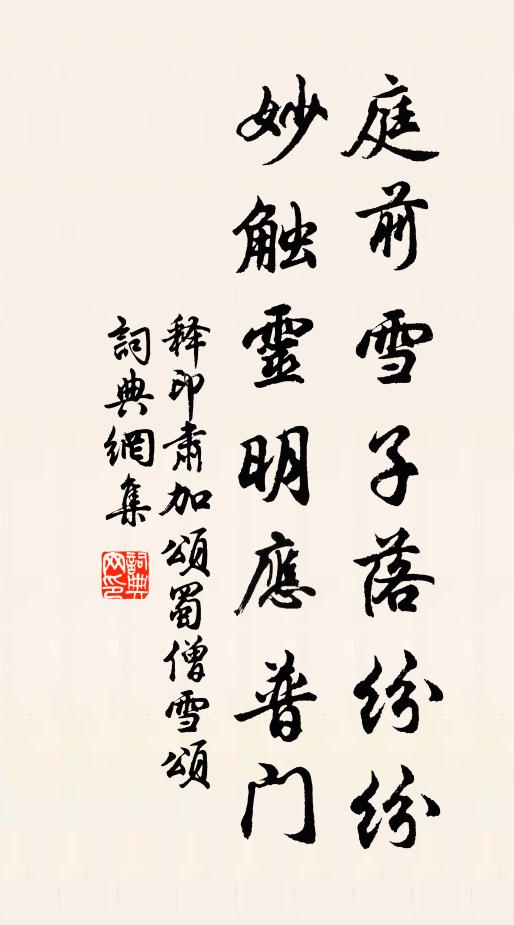 庭前雪子落纷纷
妙触靈明應普门
释印肅加頌蜀僧雪頌
詞典網集
詞典网印